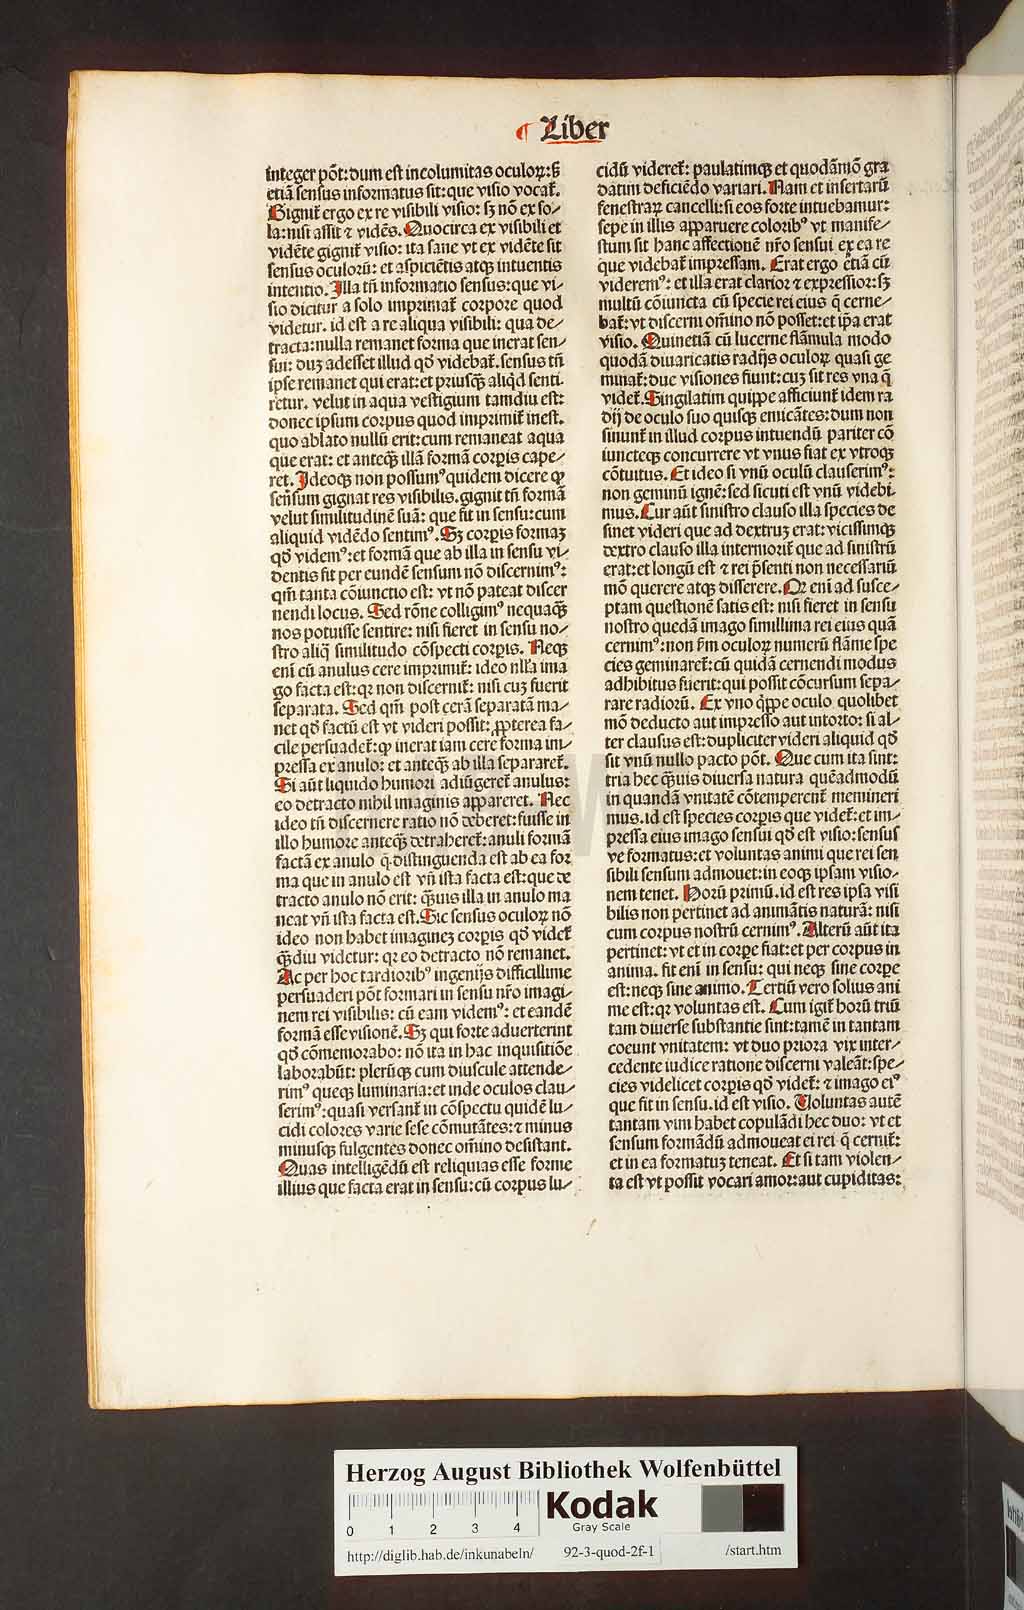 ¶ Liber
integer põt: dum est incolumitas oculoꝝ: s̃
etiã sensus informatus sit: que visio vocat᷑.
Gignit᷑ ergo ex re visibili visio: sꝫ nõ ex so⸗
la: nisi assit ⁊ vidẽs. Quocirca ex visibili et
vidẽte gignit᷑ visio: ita sane vt ex vidẽte sit
sensus oculorũ: et aspiciẽtis atqꝫ intuentis
intentio. Illa tñ informatio sensus: que vi⸗
sio dicitur a solo imprimat᷑ corpore quod
videtur. id est a re aliqua visibili: qua de⸗
tracta: nulla remanet forma que inerat sen⸗
sui: duꝫ adesset illud qd̃ videbat᷑. sensus tñ
ipse remanet qui erat: et priusqꝫ̃ aliqd̃ senti⸗
retur. velut in aqua vestigium tamdiu est:
donec ipsum corpus quod imprimit᷑ inest.
quo ablato nullũ erit: cum remaneat aqua
que erat: et anteqꝫ̃ illã formã corpis cape⸗
ret. Ideoqꝫ non possumꝰ quidem dicere ꝙ
señsum gignat res visibilis. gignit tñ formã
velut similitudinẽ suã: que fit in sensu: cum
aliquid vidẽdo sentimꝰ. Sꝫ corpis formaꝫ
qd̃ videmꝰ: et formã que ab illa in sensu vi⸗
dentis fit per eundẽ sensum nõ discernimꝰ:
qm̃ tanta cõiunctio est: vt nõ pateat discer
nendi locus. Sed rõne colligimꝰ nequaqꝫ̃
nos potuisse sentire: nisi fieret in sensu no⸗
stro aliq̃ similitudo cõspecti corpis. Neqꝫ
eni cũ anulus cere imprimit᷑: ideo nlľa ima
go facta est: qꝛ non discernit᷑: nisi cuꝫ fuerit
separata. Sed qm̃ post cerã separatã ma⸗
net qd̃ factũ est vt videri possit: ꝓpterea fa⸗
cile persuadet᷑: ꝙ inerat iam cere forma im⸗
pressa ex anulo: et anteqꝫ̃ ab illa separaret᷑.
Si aũt liquido humori adiũgeret᷑ anulus:
eo detracto nihil imaginis appareret. Nec
ideo tñ discernere ratio nõ deberet: fuisse in
illo humore anteqꝫ̃ detraheret᷑: anuli formã
factã ex anulo q̃ distinguenda est ab ea for
ma que in anulo est vñ ista facta est: que de
tracto anulo nõ erit: qꝫ̃uis illa in anulo ma
neat vñ ista facta est. Sic sensus oculoꝝ nõ
ideo non habet imagineꝫ corpis qd̃ videt᷑
qꝫ̃diu videtur: qꝛ eo detracto nõ remanet.
Ac per hoc tardioribꝰ ingenijs difficillime
persuaderi põt formari in sensu nr̃o imagi⸗
nem rei visibilis: cũ eam videmꝰ: et eandẽ
formã esse visionẽ. Sꝫ qui forte aduerterint
qd̃ cõmemorabo: nõ ita in hac inquisitiõe
laborabũt: plerũqꝫ cum diuscule attende⸗
rimꝰ queqꝫ luminaria: et inde oculos clau⸗
serimꝰ: quasi versant᷑ in cõspectu quidẽ lu⸗
cidi colores varie sese cõmutãtes: ⁊ minus
minusqꝫ fulgentes donec om̃ino desistant.
Quas intelligẽdũ est reliquias esse forme
illius que facta erat in sensu: cũ corpus lu⸗
cidũ videret᷑: paulatimqꝫ et quodãmõ gra
datim deficiẽdo variari. Nam et insertarũ
fenestraꝝ cancelli: si eos forte intuebamur:
sepe in illis apparuere coloribꝰ vt manife⸗
stum sit hanc affectionẽ nr̃o sensui ex ea re
que videbat᷑ impressam. Erat ergo etiã cũ
videremꝰ: et illa erat clarior ⁊ expressior: sꝫ
multũ cõiuncta cũ specie rei eius q̃ cerne⸗
bat᷑: vt discerni om̃ino nõ posset: et ip̃a erat
visio. Quinetiã cũ lucerne flãmula modo
quodã diuaricatis radijs oculoꝝ quasi ge
minat᷑: due visiones fiunt: cuꝫ sit res vna q̃
videt᷑. Singilatim quippe afficiunt᷑ idem ra
dij de oculo suo quisqꝫ emicãtes: dum non
sinunt᷑ in illud corpus intuendũ pariter cõ
iuncteqꝫ concurrere vt vnus fiat ex vtroqꝫ
cõtuitus. Et ideo si vnũ oculũ clauserimꝰ:
non geminũ ignẽ: sed sicuti est vnũ videbi
mus. Cur aũt sinistro clauso illa species de
sinet videri que ad dextruꝫ erat: vicissimqꝫ
dextro clauso illa intermorit᷑ que ad sinistrũ
erat: et longũ est ⁊ rei p̃senti non necessariũ
mõ querere atqꝫ disserere. Qꝛ eni ad susce⸗
ptam questionẽ satis est: nisi fieret in sensu
nostro quedã imago simillima rei eius quã
cernimꝰ: non ẜm oculoꝝ numerũ flãme spe
cies geminaret᷑: cũ quidã cernendi modus
adhibitus fuerit: qui possit cõcursum sepa⸗
rare radiorũ. Ex vno qͥppe oculo quolibet
mõ deducto aut impresso aut intorto: si al⸗
ter clausus est: dupliciter videri aliquid qd̃
sit vnũ nullo pacto põt. Que cum ita sint:
tria hec qꝫ̃uis diuersa natura quẽadmodũ
in quandã vnitatẽ cõtemperent᷑ memineri
mus. id est species corpis que videt᷑: et im⸗
pressa eius imago sensui qd̃ est visio: sensus
ve formatus: et voluntas animi que rei sen
sibili sensum admouet: in eoqꝫ ipsam visio⸗
nem tenet. Horũ primũ. id est res ipsa visi
bilis non pertinet ad animãtis naturã: nisi
cum corpus nostrũ cernimꝰ. Alterũ aũt ita
pertinet: vt et in corpe fiat: et per corpus in
anima. fit eni in sensu: qui neqꝫ sine corpe
est: neqꝫ sine animo. Tertiũ vero solius ani
me est: qꝛ voluntas est. Cum igit᷑ horũ triũ
tam diuerse substantie sint: tamẽ in tantam
coeunt vnitatem: vt duo priora vix inter⸗
cedente iudice ratione discerni valeãt: spe⸗
cies videlicet corpis qd̃ videt᷑: ⁊ imago eiꝰ
que fit in sensu. id est visio. Uoluntas autẽ
tantam vim habet copulãdi hec duo: vt et
sensum formãdũ admoueat ei rei q̃ cernit᷑:
et in ea formatuꝫ teneat. Et si tam violen⸗
ta est vt possit vocari amor: aut cupiditas:
Herzog August Bibliothek Wolfenbüttel
0 1 2 3 4
Kodak
Gray Scale
http://diglib.hab.de/inkunabeln/ 92-3-quod-2f-1 /start.htm